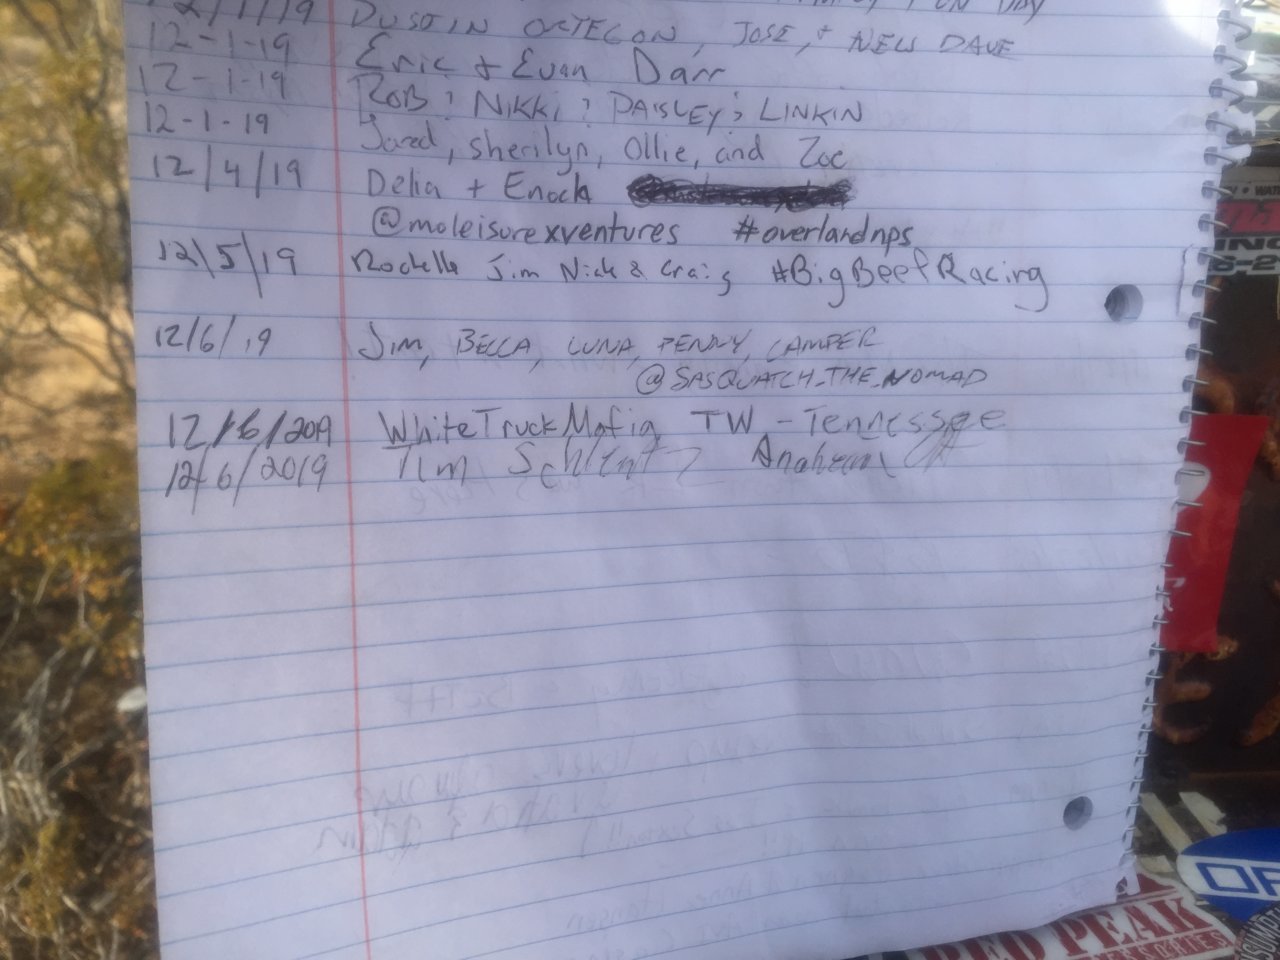 12/1/19 DUSTIN ORTEGON, JOSE, + NEW DAVE
12-1-19 Eric + Evan Darr
12-1-19 ROB & NIKKI & PAISLEY & LINKIN
12-1-19 Jared, Sherilyn, Ollie, and Zoe
12/4/19 Delia + Enoch
@moleisurexventures #overlandnps
12/5/19 Rochelle Jim Nick & Craig #BigBeefRacing
12/6/19 Jim, BECCA, LUNA, PENNY, CAMPER
@SASQUATCH_THE_NOMAD
12/6/2019 WhiteTruckMafia TW - Tennessee
12/6/2019 Tim Anaheim CA
RED PEAK